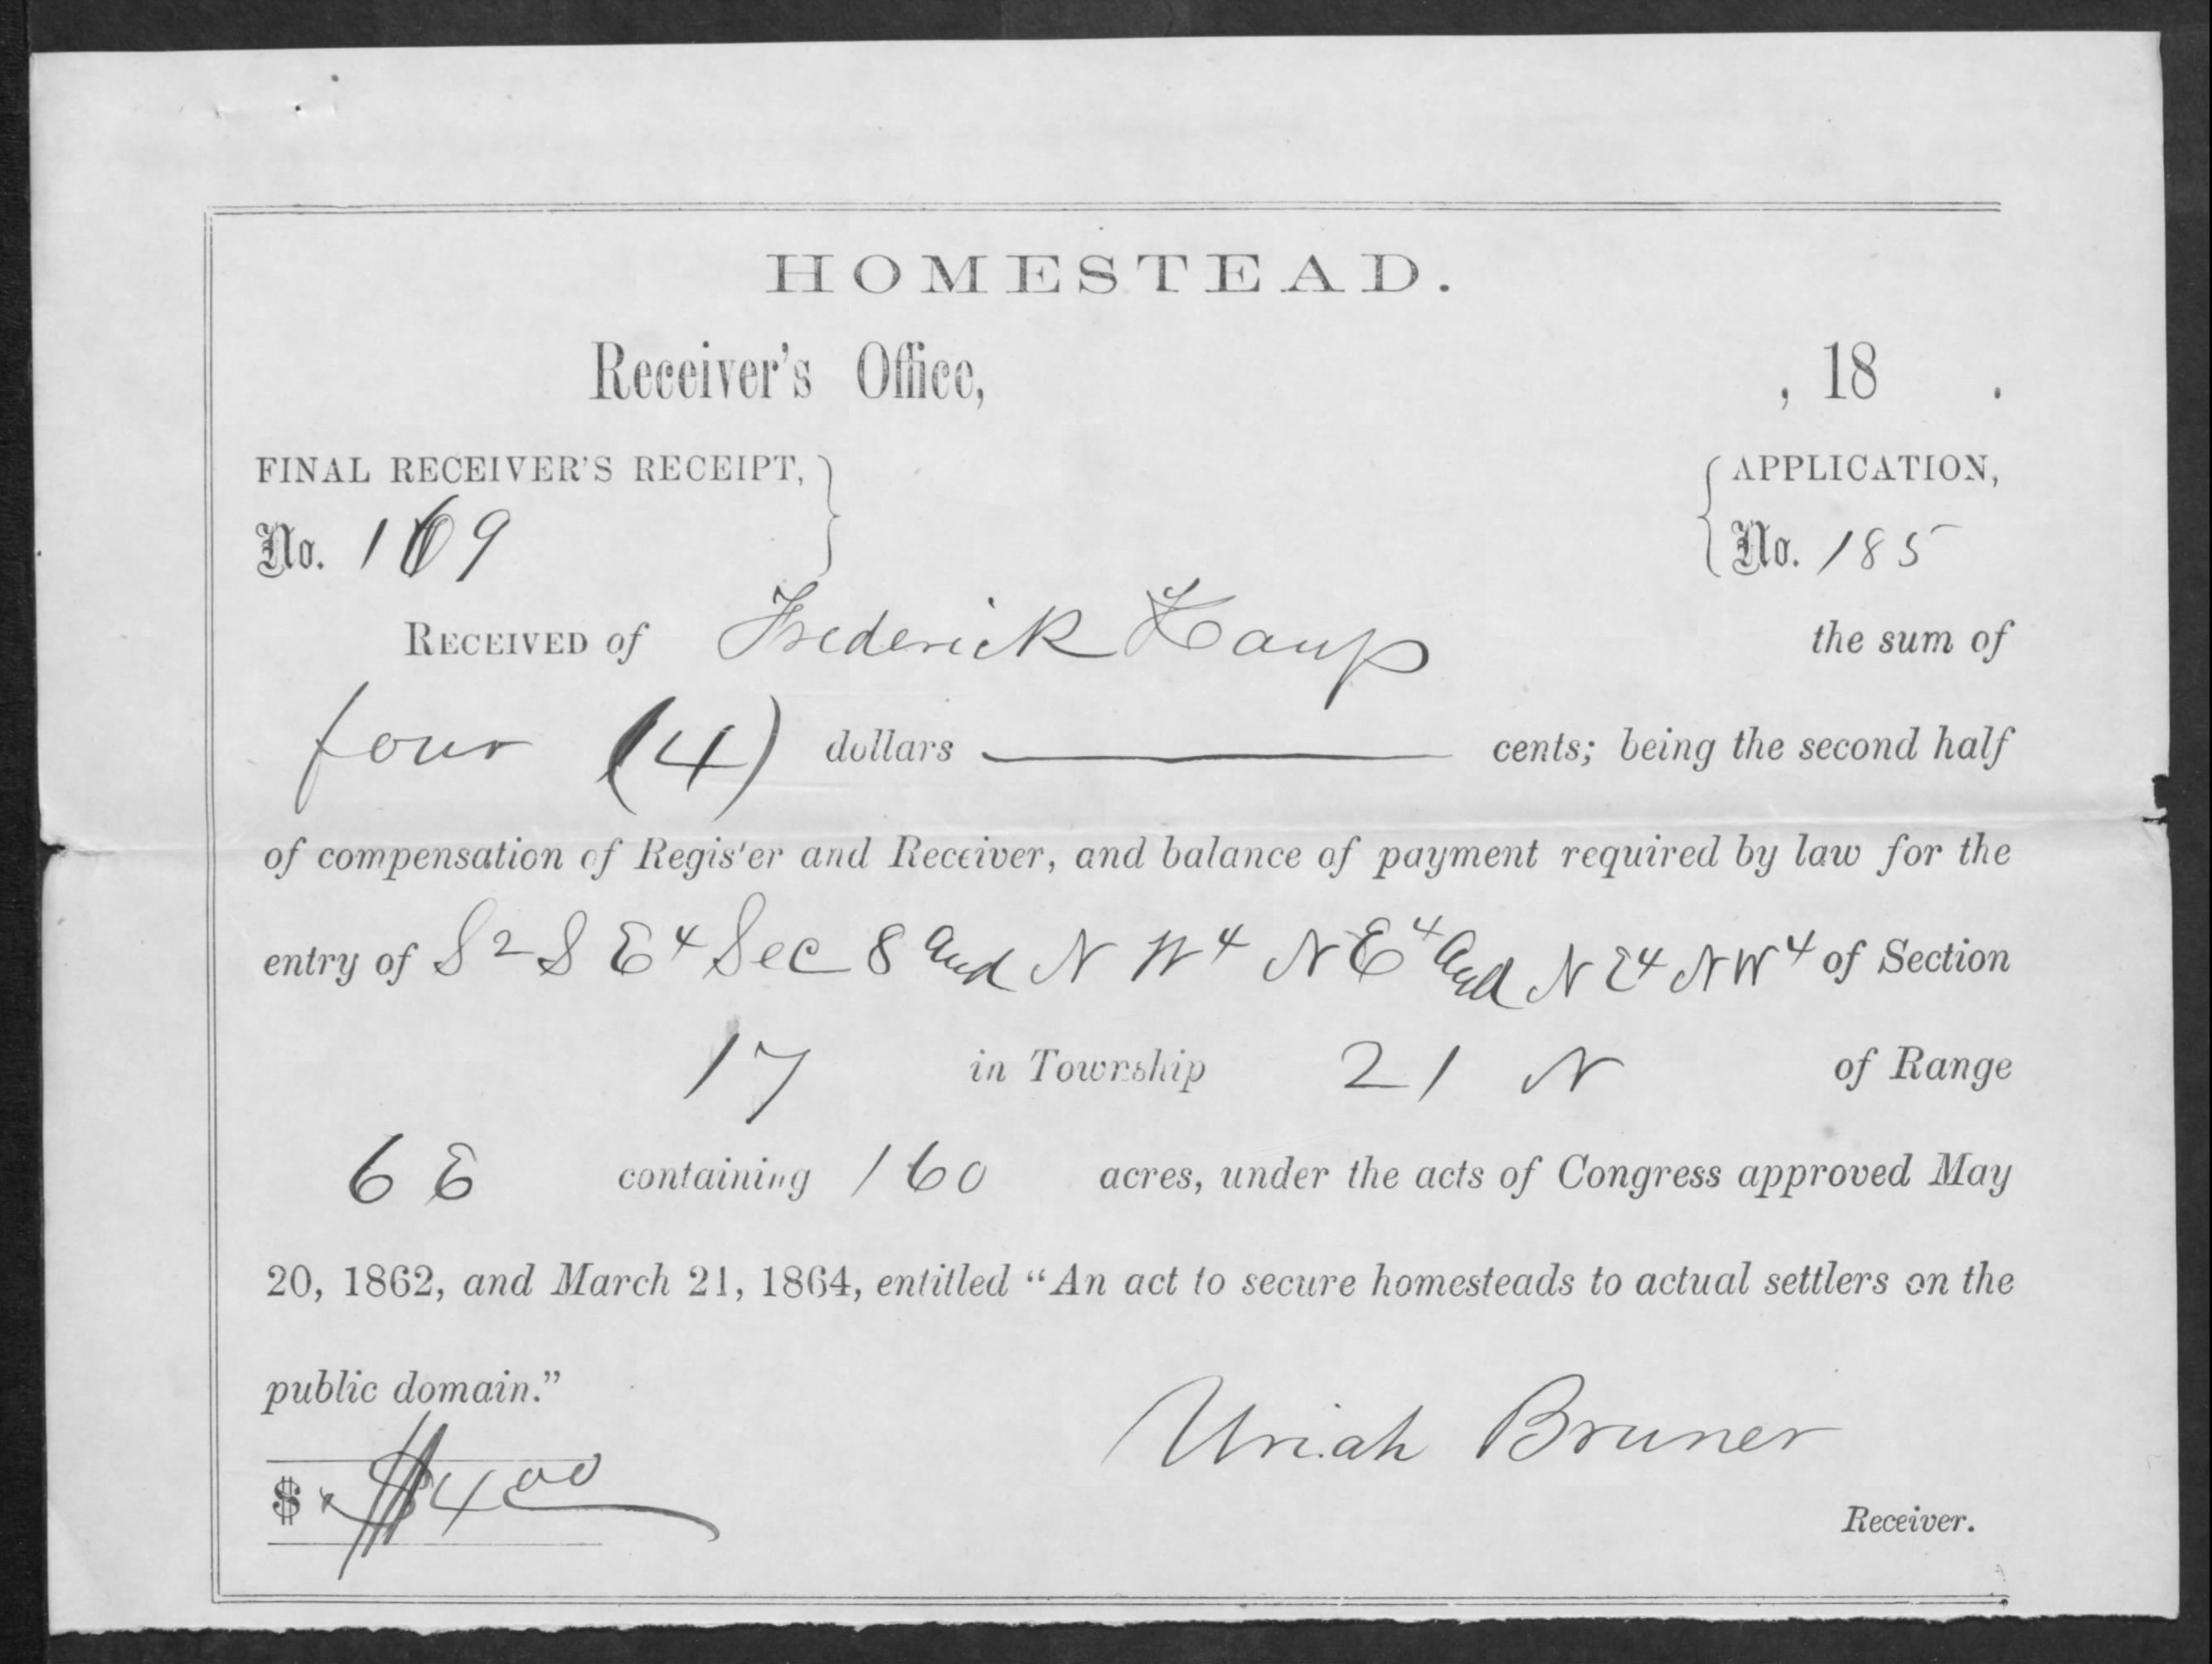 HOMESTEAD.
Receiver's Office, , 18 .
FINAL RECEIVER'S RECEIPT, APPLICATION,
No. 169 No. 185
RECEIVED of Frederick Kaup the sum of
four (4) dollars — cents; being the second half
of compensation of Regis'er and Receiver, and balance of payment required by law for the
entry of S2 S E4 Sec 8 and N W4 N E4 and N E4 N W4 of Section
17 in Township 21 N of Range
6 E containing 160 acres, under the acts of Congress approved May
20, 1862, and March 21, 1864, entitled “An act to secure homesteads to actual settlers on the
public domain.”
Uriah Bruner
$ $4 00
Receiver.